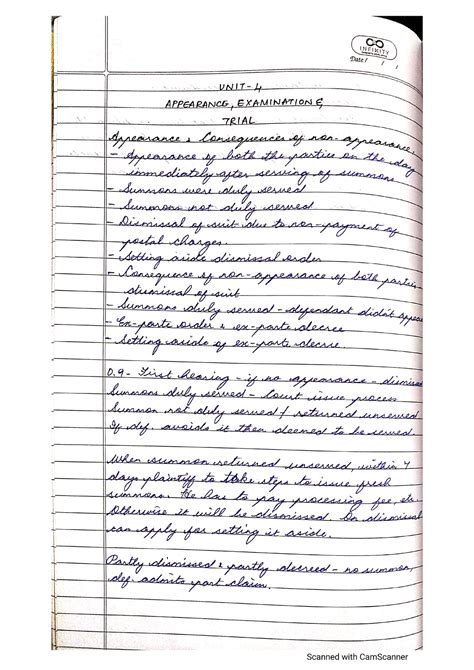 INFINITY
Date / / /
UNIT-4
APPEARANCE, EXAMINATION &
TRIAL
Appearance & Consequences of non-appearance.
- Appearance of both the parties on the day
immediately after serving of summons
- Summons were duly served
- Summons not duly served
- Dismissal of suit due to non-payment of
postal charges.
- Setting aside dismissal order
- Consequence of non-appearance of both parties
dismissal of suit
- Summons duly served - defendant didn't appear
- Ex-parte order & ex-parte decree
- Setting aside of ex-parte decree
O.9- First hearing - if no appearance - dismissal
Summons duly served - Court issue process
Summon not duly served / returned unserved
If def. avoids it then deemed to be served.
When summon returned unserved, within 7
days plaintiff to take steps to issue fresh
summons. He has to pay processing fee, etc.
Otherwise it will be dismissed. On dismissal
can apply for setting it aside.
Partly dismissed & partly decreed - no summon,
def. admits part claim.
Scanned with CamScanner